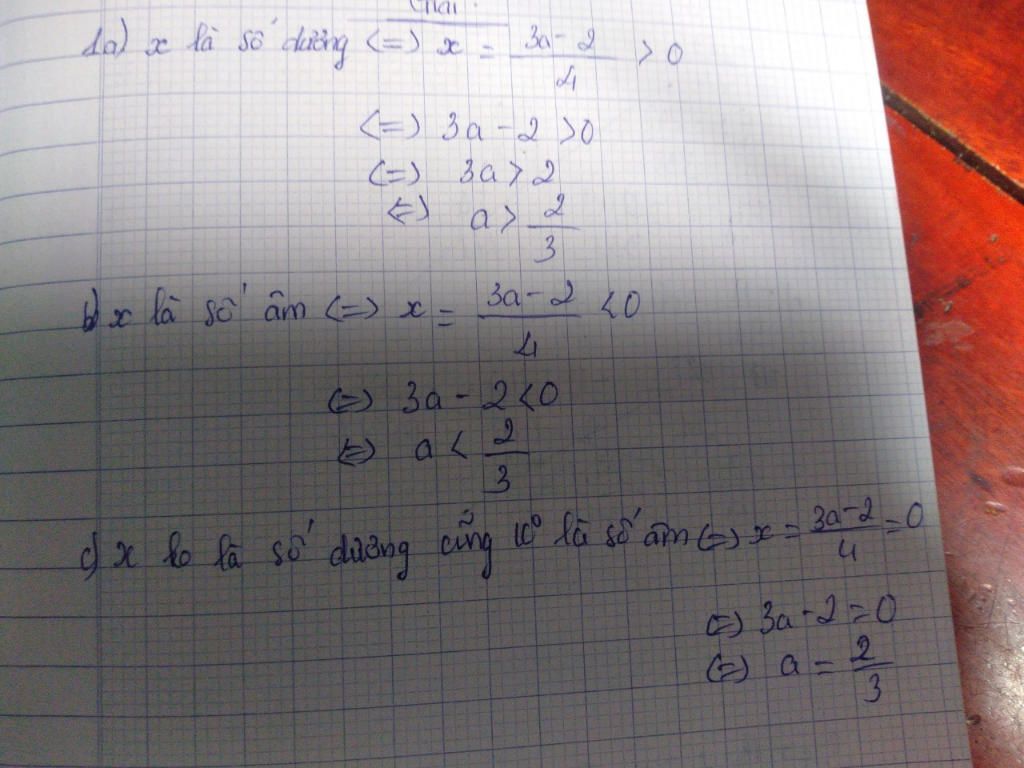 Giải:
1a) x là số dương (=) x = \frac{3a-2}{4} > 0
(=) 3a - 2 > 0
(=) 3a > 2
(=) a > \frac{2}{3}
b) x là số âm (=) x = \frac{3a-2}{4} < 0
(=) 3a - 2 < 0
(=) a < \frac{2}{3}
c) x ko là số dương cũng k° là số âm (=) x = \frac{3a-2}{4} = 0
(=) 3a - 2 = 0
(=) a = \frac{2}{3}